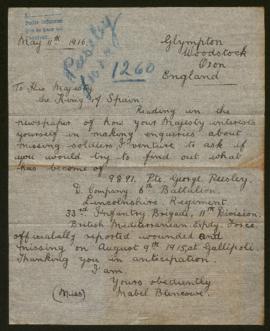 May 11th 1916.
Glympton
Woodstock
Oxon
England
1260
To His Majesty
the King of Spain.
Reading in the
newspaper of how your Majesty interests
yourself in making enquiries about
missing soldiers I venture to ask if
you would try to find out what
has become of
9891. Pte George Peesley
D. Company 6th Battalion,
Lincolnshire Regiment.
33rd Infantry, Brigade, 11th Division.
British Mediterranean Expdy. Force
officially reported wounded and
missing on August 9th 1915, at Gallipoli
Thanking you in anticipation.
I am
Yours obediently
(Miss) Mabel Blencowe.